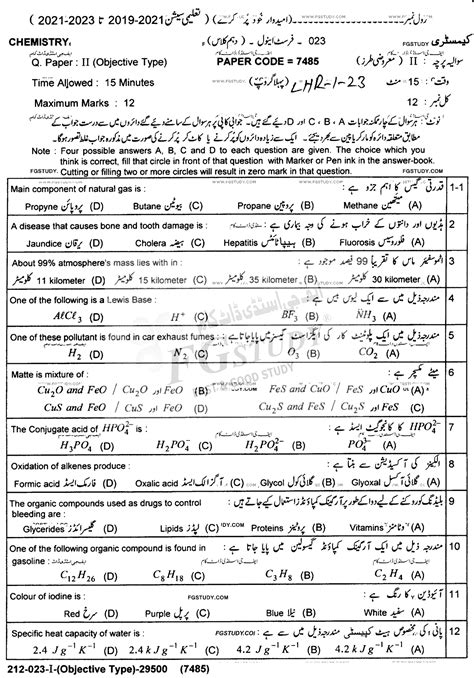 رول نمبر (امیدوار خود پُر کرے) (تعلیمی سیشن 2021-2019 تا 2023-2021)
CHEMISTRY 023 - فرسٹ اینول - (دہم کلاس) کیمسٹری
Q. Paper : II (Objective Type) PAPER CODE = 7485 سوالیہ پرچہ : II (معروضی طرز)
Time Allowed : 15 Minutes (پہلا گروپ) LHR-1-23 وقت : 15 منٹ
Maximum Marks : 12 کل نمبر : 12
نوٹ : ہر سوال کے چار ممکنہ جوابات A ، B ، C اور D دیے گئے ہیں۔ جوابی کاپی پر ہر سوال کے سامنے دیے گئے دائروں میں سے درست جواب کے
مطابق متعلقہ دائرہ کو مارکر یا پین سے بھر دیجئے۔ ایک سے زیادہ دائروں کو پُر کرنے یا کاٹ کر پُر کرنے کی صورت میں مذکورہ جواب غلط تصور ہو گا۔
Note : Four possible answers A, B, C and D to each question are given. The choice which you
think is correct, fill that circle in front of that question with Marker or Pen ink in the answer-book.
Cutting or filling two or more circles will result in zero mark in that question.
Main component of natural gas is : قدرتی گیس کا اہم جزو ہے : 1-1
Propyne پروپائن (D) Butane بیوٹین (C) Propene پروپین (B) Methane میتھین (A)
A disease that causes bone and tooth damage is : ہڈیوں اور دانتوں کے خراب ہونے کی وجہ بیماری ہے : 2
Jaundice یرقان (D) Cholera ہیضہ (C) Hepatitis ہیپاٹائٹس (B) Fluorosis فلوروسس (A)
About 99% atmosphere's mass lies with in : اٹموسفیئر ماس کا تقریباً 99 فیصد موجود ہے : 3
11 kilometer کلومیٹر (D) 15 kilometer کلومیٹر (C) 35 kilometer کلومیٹر (B) 30 kilometer کلومیٹر (A)
One of the following is a Lewis Base : مندرجہ ذیل میں سے ایک لیوس بیس ہے : 4
AℓCℓ₃ (D) H⁺ (C) BF₃ (B) N̈H₃ (A)
One of these pollutant is found in car exhaust fumes : مندرجہ ذیل میں سے ایک پلوٹینٹ کار کی ایگزاسٹ گیسز میں پایا جاتا ہے : 5
H₂ (D) N₂ (C) O₃ (B) CO₂ (A)
Matte is mixture of : میٹے مکسچر ہے : 6
Cu₂O and FeO / Cu₂O اور FeO (B) FeS and CuO / FeS اور CuO (A)
CuS and FeO / CuS اور FeO (D) Cu₂S and FeS / Cu₂S اور FeS (C)
The Conjugate acid of HPO₄²⁻ is : HPO₄²⁻ کا کانجوگیٹ ایسڈ ہے : 7
H₃PO₄ (D) H₂PO₄⁻ (C) H₂PO₄²⁻ (B) PO₄³⁻ (A)
Oxidation of alkenes produce : الکینز کی آکسیڈیشن سے بنتا ہے : 8
Formic acid فارمک ایسڈ (D) Oxalic acid آگزالک ایسڈ (C) Glycol گلائی کول (B) Glyoxal گلائی آکسل (A)
The organic compounds used as drugs to control بلیڈنگ کو روکنے کے لیے دوا کے طور پر آرگینک کمپاؤنڈز استعمال کیے جاتے ہیں : 9
bleeding are :
Glycerides گلیسرائڈز (D) Lipids لپڈز (C) Proteins پروٹینز (B) Vitamins وٹامنز (A)
One of the following organic compound is found in مندرجہ ذیل میں سے ایک آرگینک کمپاؤنڈ گیسولین میں پایا جاتا ہے : 10
gasoline :
C₁₂H₂₆ (D) C₈H₁₈ (C) C₃H₈ (B) C₂H₄ (A)
Colour of iodine is : آئیوڈین کا رنگ ہے : 11
Red سرخ (D) Purple پرپل (C) Blue نیلا (B) White سفید (A)
Specific heat capacity of water is : پانی کی مخصوص ہیٹ کپیسٹی مندرجہ ذیل میں سے ہے : 12
2.4 J g⁻¹ K⁻¹ (D) 2.4 kJ g⁻¹ K⁻¹ (C) 4.2 J g⁻¹ K⁻¹ (B) 4.2 kJ g⁻¹ K⁻¹ (A)
212-023-I-(Objective Type)-29500 (7485)
FGSTUDY
FGSTUDY.COM